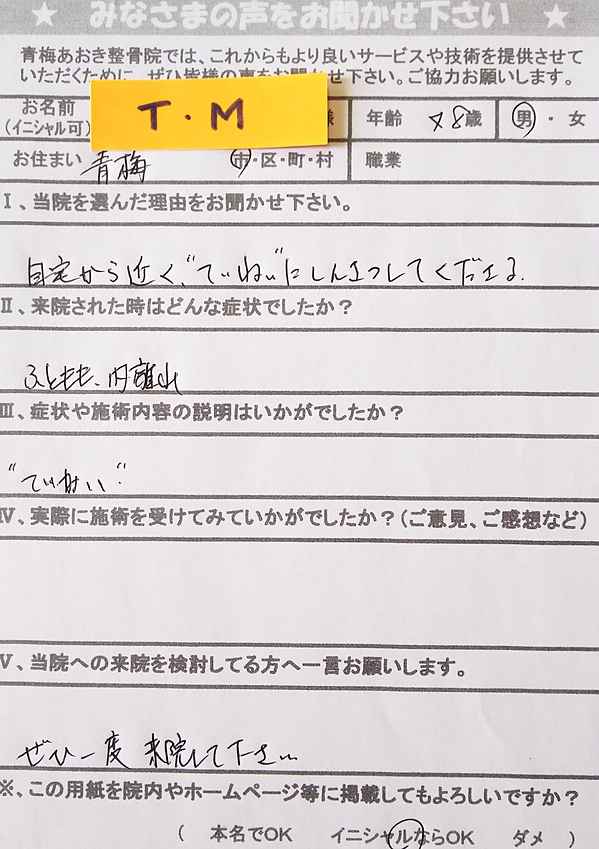 ★ みなさまの声をお聞かせ下さい ★
青梅あおき整骨院では、これからもより良いサービスや技術を提供させて
いただくために、ぜひ皆様の声をお聞かせ下さい。ご協力お願いします。
お名前 (イニシャル可) T.M 様 年齢 8歳 男・女
お住まい 青梅 市・区・町・村 職業
Ⅰ、当院を選んだ理由をお聞かせ下さい。
自宅から近く、"ていねい"にしんさつしてくださる。
Ⅱ、来院された時はどんな症状でしたか?
ふともも、肉離れ
Ⅲ、症状や施術内容の説明はいかがでしたか?
"ていねい"
Ⅳ、実際に施術を受けてみていかがでしたか?(ご意見、ご感想など)
Ⅴ、当院への来院を検討してる方へ一言お願いします。
ぜひ一度 来院して下さい
※、この用紙を院内やホームページ等に掲載してもよろしいですか?
( 本名でOK イニシャルならOK ダメ )